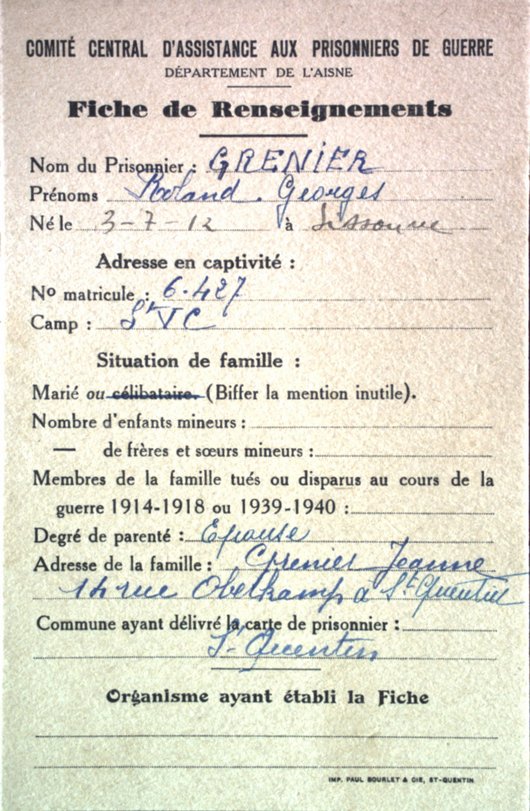 COMITÉ CENTRAL D'ASSISTANCE AUX PRISONNIERS DE GUERRE
DÉPARTEMENT DE L'AISNE
Fiche de Renseignements
Nom du Prisonnier : GRENIER
Prénoms Roland. Georges
Né le 3-7-12 à Sissonne
Adresse en captivité :
No matricule : 6.427
Camp : St VC
Situation de famille :
Marié ou célibataire. (Biffer la mention inutile).
Nombre d'enfants mineurs :
— de frères et sœurs mineurs :
Membres de la famille tués ou disparus au cours de la
guerre 1914-1918 ou 1939-1940 :
Degré de parenté : Epouse
Adresse de la famille : Grenier Jeanne
14 rue Obelkamp à St Quentin
Commune ayant délivré la carte de prisonnier :
St Quentin
Organisme ayant établi la Fiche
IMP. PAUL BOURLET & CIE, ST-QUENTIN